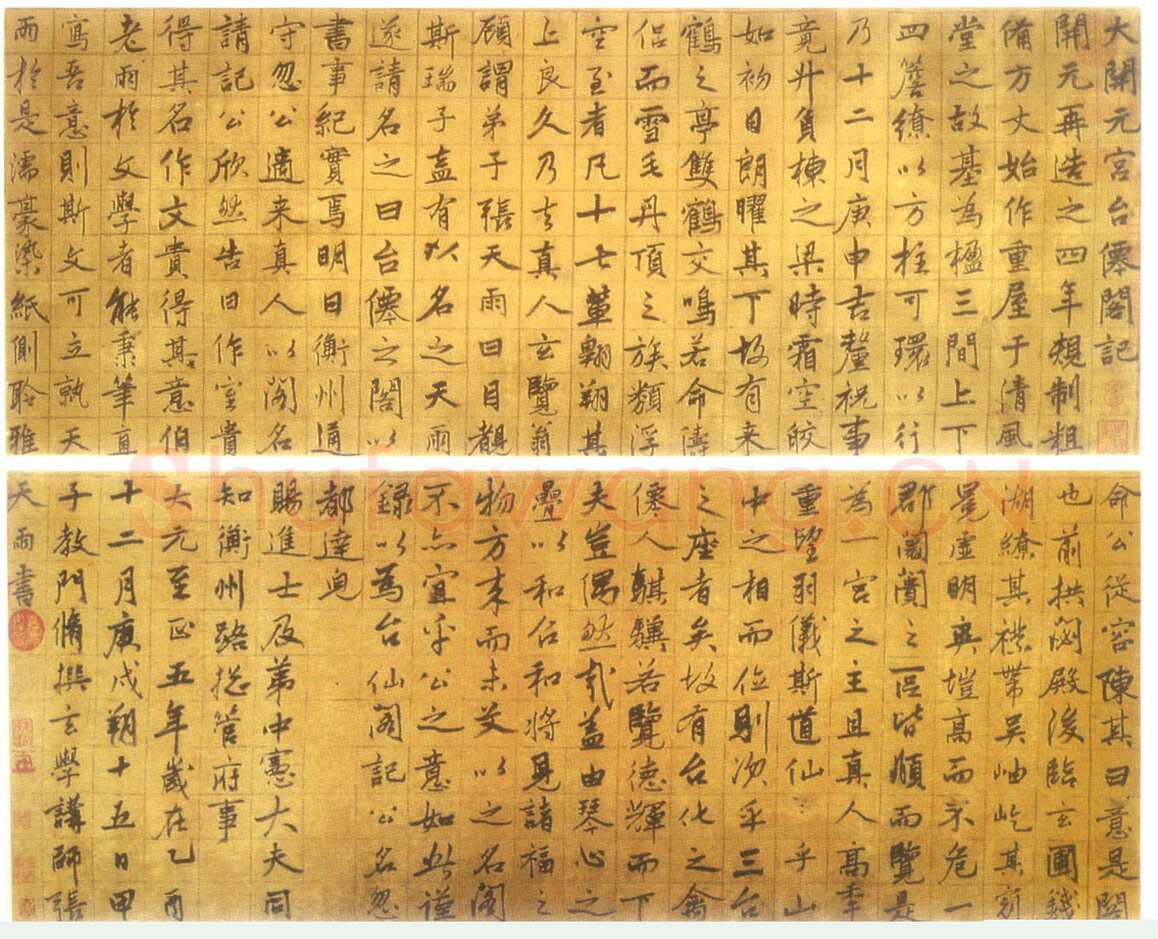 大開元宮台僊閣記
開元再造之四年規制粗
備方丈始作重屋于清風
堂之故基為楹三間上下
四簷繚以方柱可環以行
乃十二月庚申吉釐祝事
竟升負棟之梁時霜空皎
如初日朗曜其下故有来
鶴之亭雙鶴交鳴若命儔
侶而雪毛丹頂之族類浮
空至者凡十七輩翱翔其
上良久乃去真人玄覽翁
顧謂弟子張天雨曰目覩
斯瑞子盍有以名之天雨
遂請名之曰台僊之閣以
書事紀實焉明日衡州通
守忽公適来真人以閣名
請記公欣然告曰作室貴
得其名作文貴得其意伯
老雨於文學者能秉筆直
寫吾意則斯文可立孰天
雨於是濡豪染紙側聆雅
命公從容陳其曰意是閣
也前拱閟殿後臨玄圃錢
湖繚其襟帶吳岫屹其
虛明爽塏高而不危一
郡闤闠之區皆頫而覽是
為一宮之主且真人高年
重望羽儀斯道仙乎山
中之相而位則次乎三台
之座者矣故有台化之禽
僊人騏驥若覽德輝而下
夫豈偶然哉盖由琴心之
疊以和召和將見諸福之
物方来而未艾以之名閣
不亦宜乎公之意如此謹
録以為台仙閣記公名忽
都達皃
賜進士及第中憲大夫同
知衡州路揔管府事
大元至正五年歲在乙酉
十二月庚戌朔十五日甲
子教門脩撰玄學講師張
天雨書
Shufawang.CN